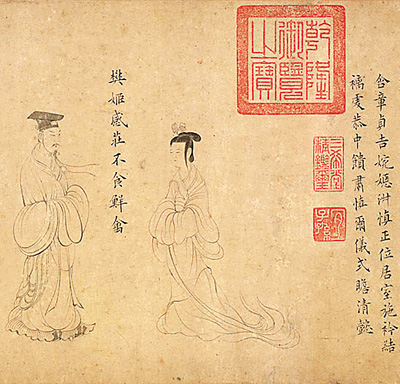 含章貞吉婉嫕淑慎正位居室施衿結
褵虔恭中饋肅慎爾儀式瞻清懿
乾隆
御覽
之寶
三希堂
精鑑璽
宜
子孫
樊姬感莊不食鮮禽